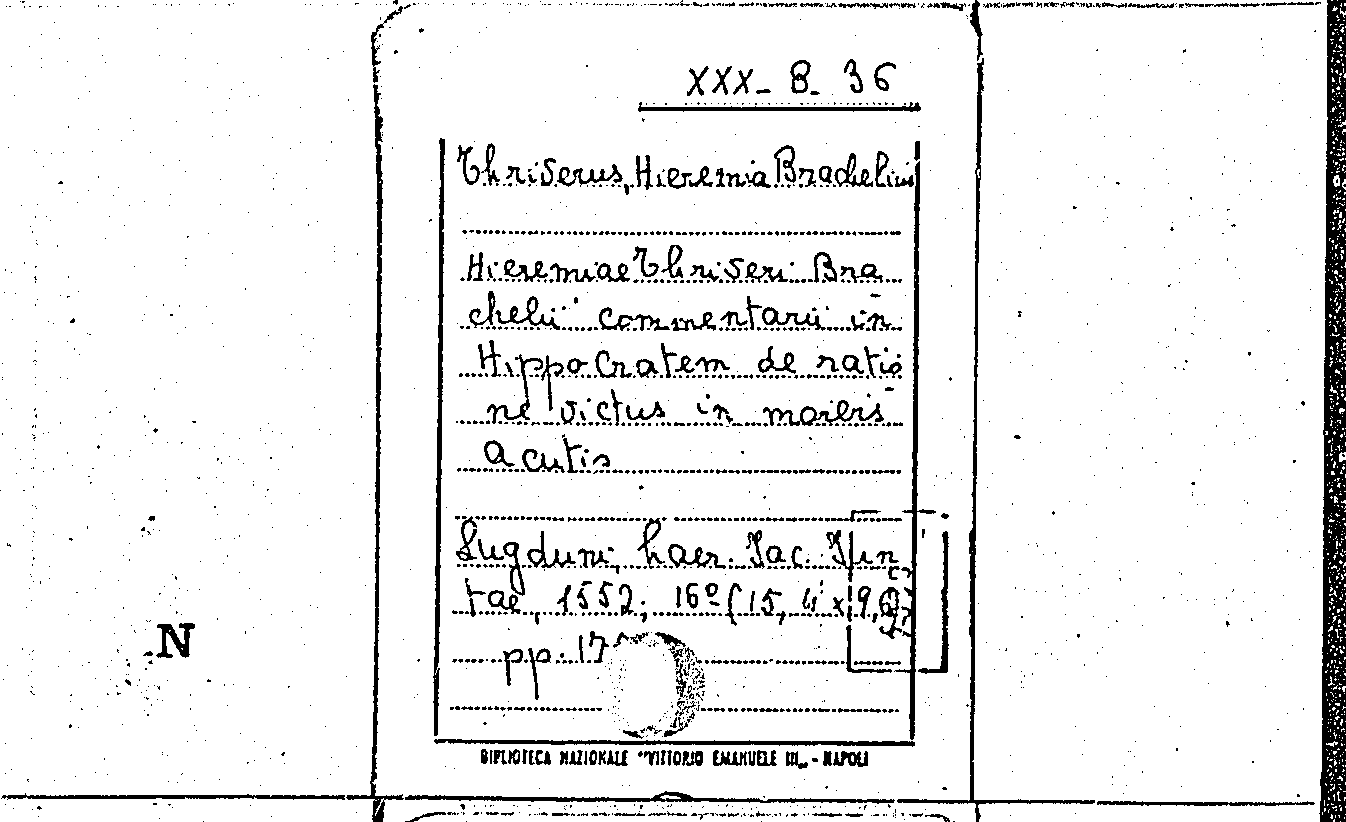 XXX- B- 36
Thriserus, Hieremia Brachelius
Hieremiae Thriseri Bra
chelii commentarii in
Hippocratem de ratio
ne victus in morbis
acutis
Lugduni, haer. Jac. Jun
tae, 1552; 16º (15,4 x 9,
pp.
N
BIBLIOTECA NAZIONALE "VITTORIO EMANUELE III" - NAPOLI